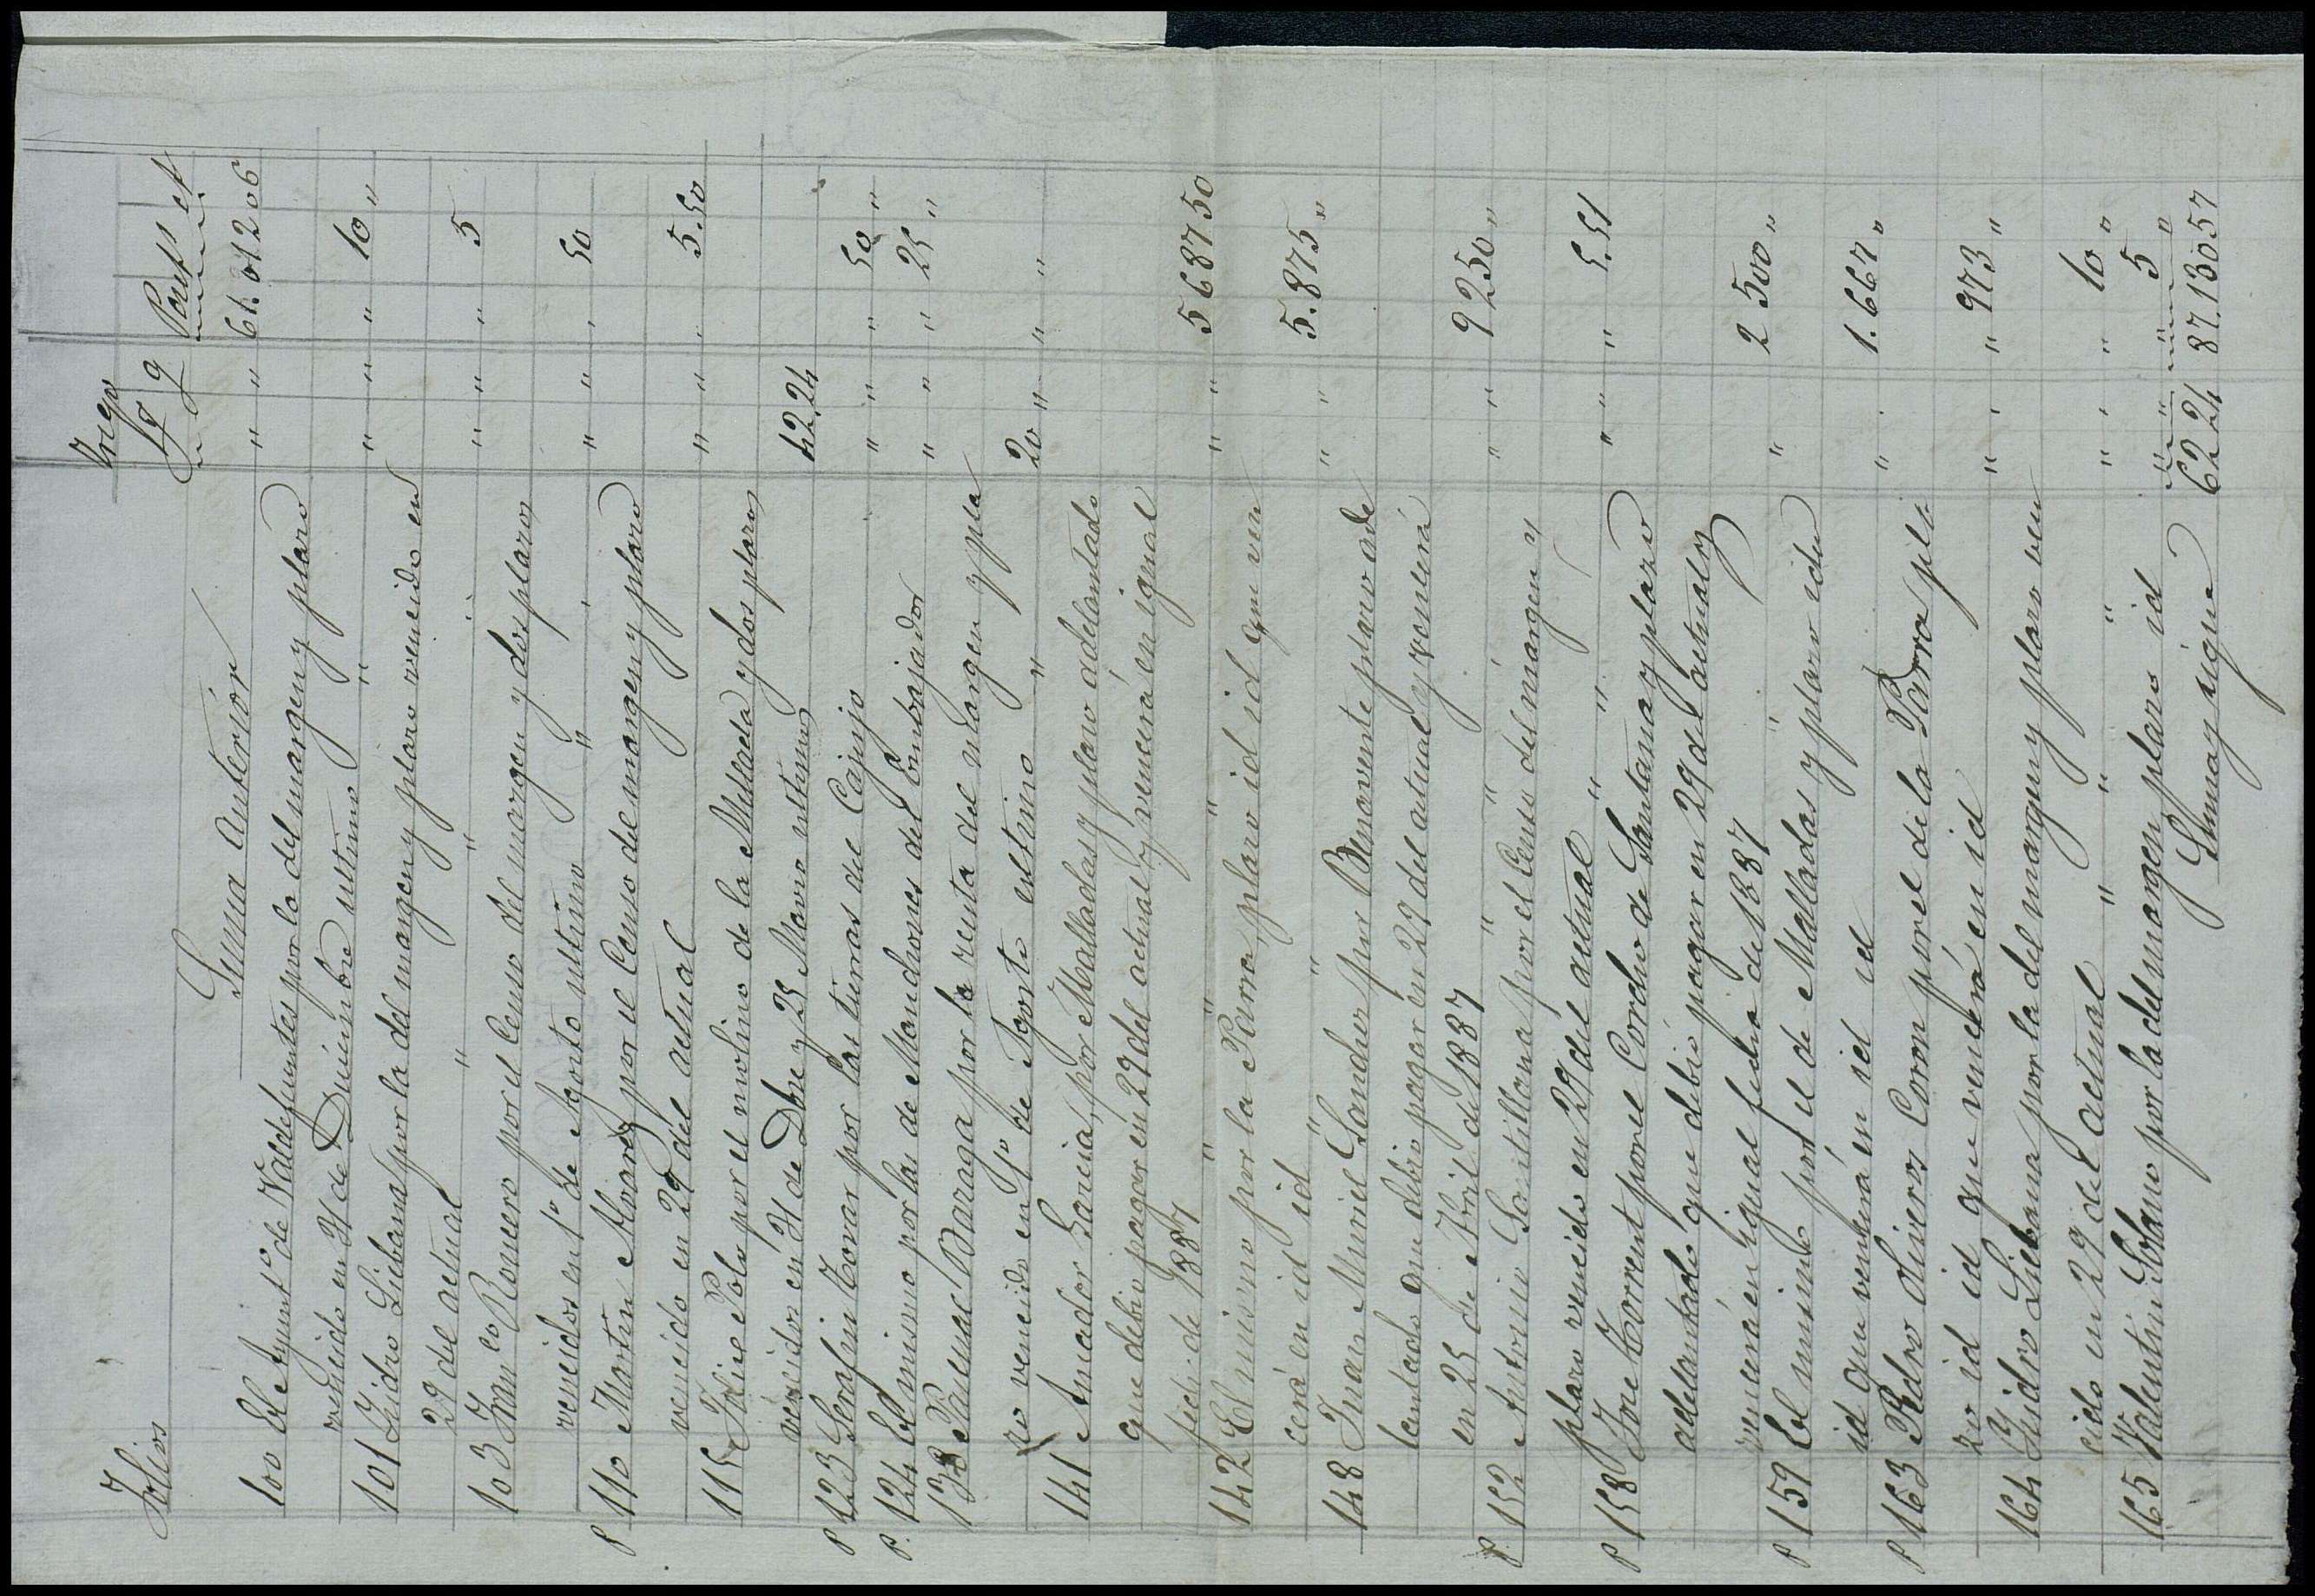 Folios Trigo
fg q Ptas ct
Suma Anterior " " 61.012 06
100 El Ayunt.º de Valdefuentes por la del margen y plazo
vencido en 31 de Diciembre ultimo " " " " 10 "
101 Ysidro Liebana por la del margen y plazo vencido en
29 del actual " " " " " 5
103 Fran.co Romero por el Censo del margen y dos plazos
vencidos en 1º de Agosto ultimo " " " " 50
P 110 Martin Alvarez por el Censo del margen y plazo
vencido en 29 del actual " " " 5.50
115 Felipe Polo por el molino de la Mulaeta y dos plazos
vencidos en 31 de Dbre y 25 Marzo ultimos 42 24
P 123 Serafin Tovar por las tierras del Cajigo " " " 50 "
P. 124 El mismo por las de Mandrones del Embajador " " " 25 "
138 Pascual Baraga por la renta del margen y pla
zo vencido en 1º de Agosto ultimo " 20 " " "
141 Amador Garcia, por Malladas y plazo adelantado
que debio pagar en 29 del actual y vencerá en igual
fecha de 1887 " " " " " 5 687 50
142 El mismo por la Parra, plazo id id que ven
cerá en id id " " " " 5.875 "
148 Juan Muriel Sanchez por Benavente plazo ade
lantado que debio pagar en 29 del actual y vencerá
en 25 de Abril de 1887 " " " " 9 250 "
P. 152 Antonio Santillana por el Censo del margen y
plazo vencido en 29 del actual " " " " " 5.51
P 158 Jose Torrent por el Cordero de Santana y plazo
adelantado que debió pagar en 29 del actual y
vencerá en igual fecha de 1887 " 2 500 "
P 159 El mismo por el de Malladas y plazo idem
id que vencerá en id id " " 1.667 "
P 163 Pedro Oliveros Corom por el de la Parra pla
zo id id que vencerá en id " " " 973 "
164 Ysidro Liebana por la del margen y plazo ven
cido en 29 del actual " " " " " " 10 "
165 Valentin Solano por la del margen plazo id " " " 5 "
Suma y sigue 62 24 87.130 57